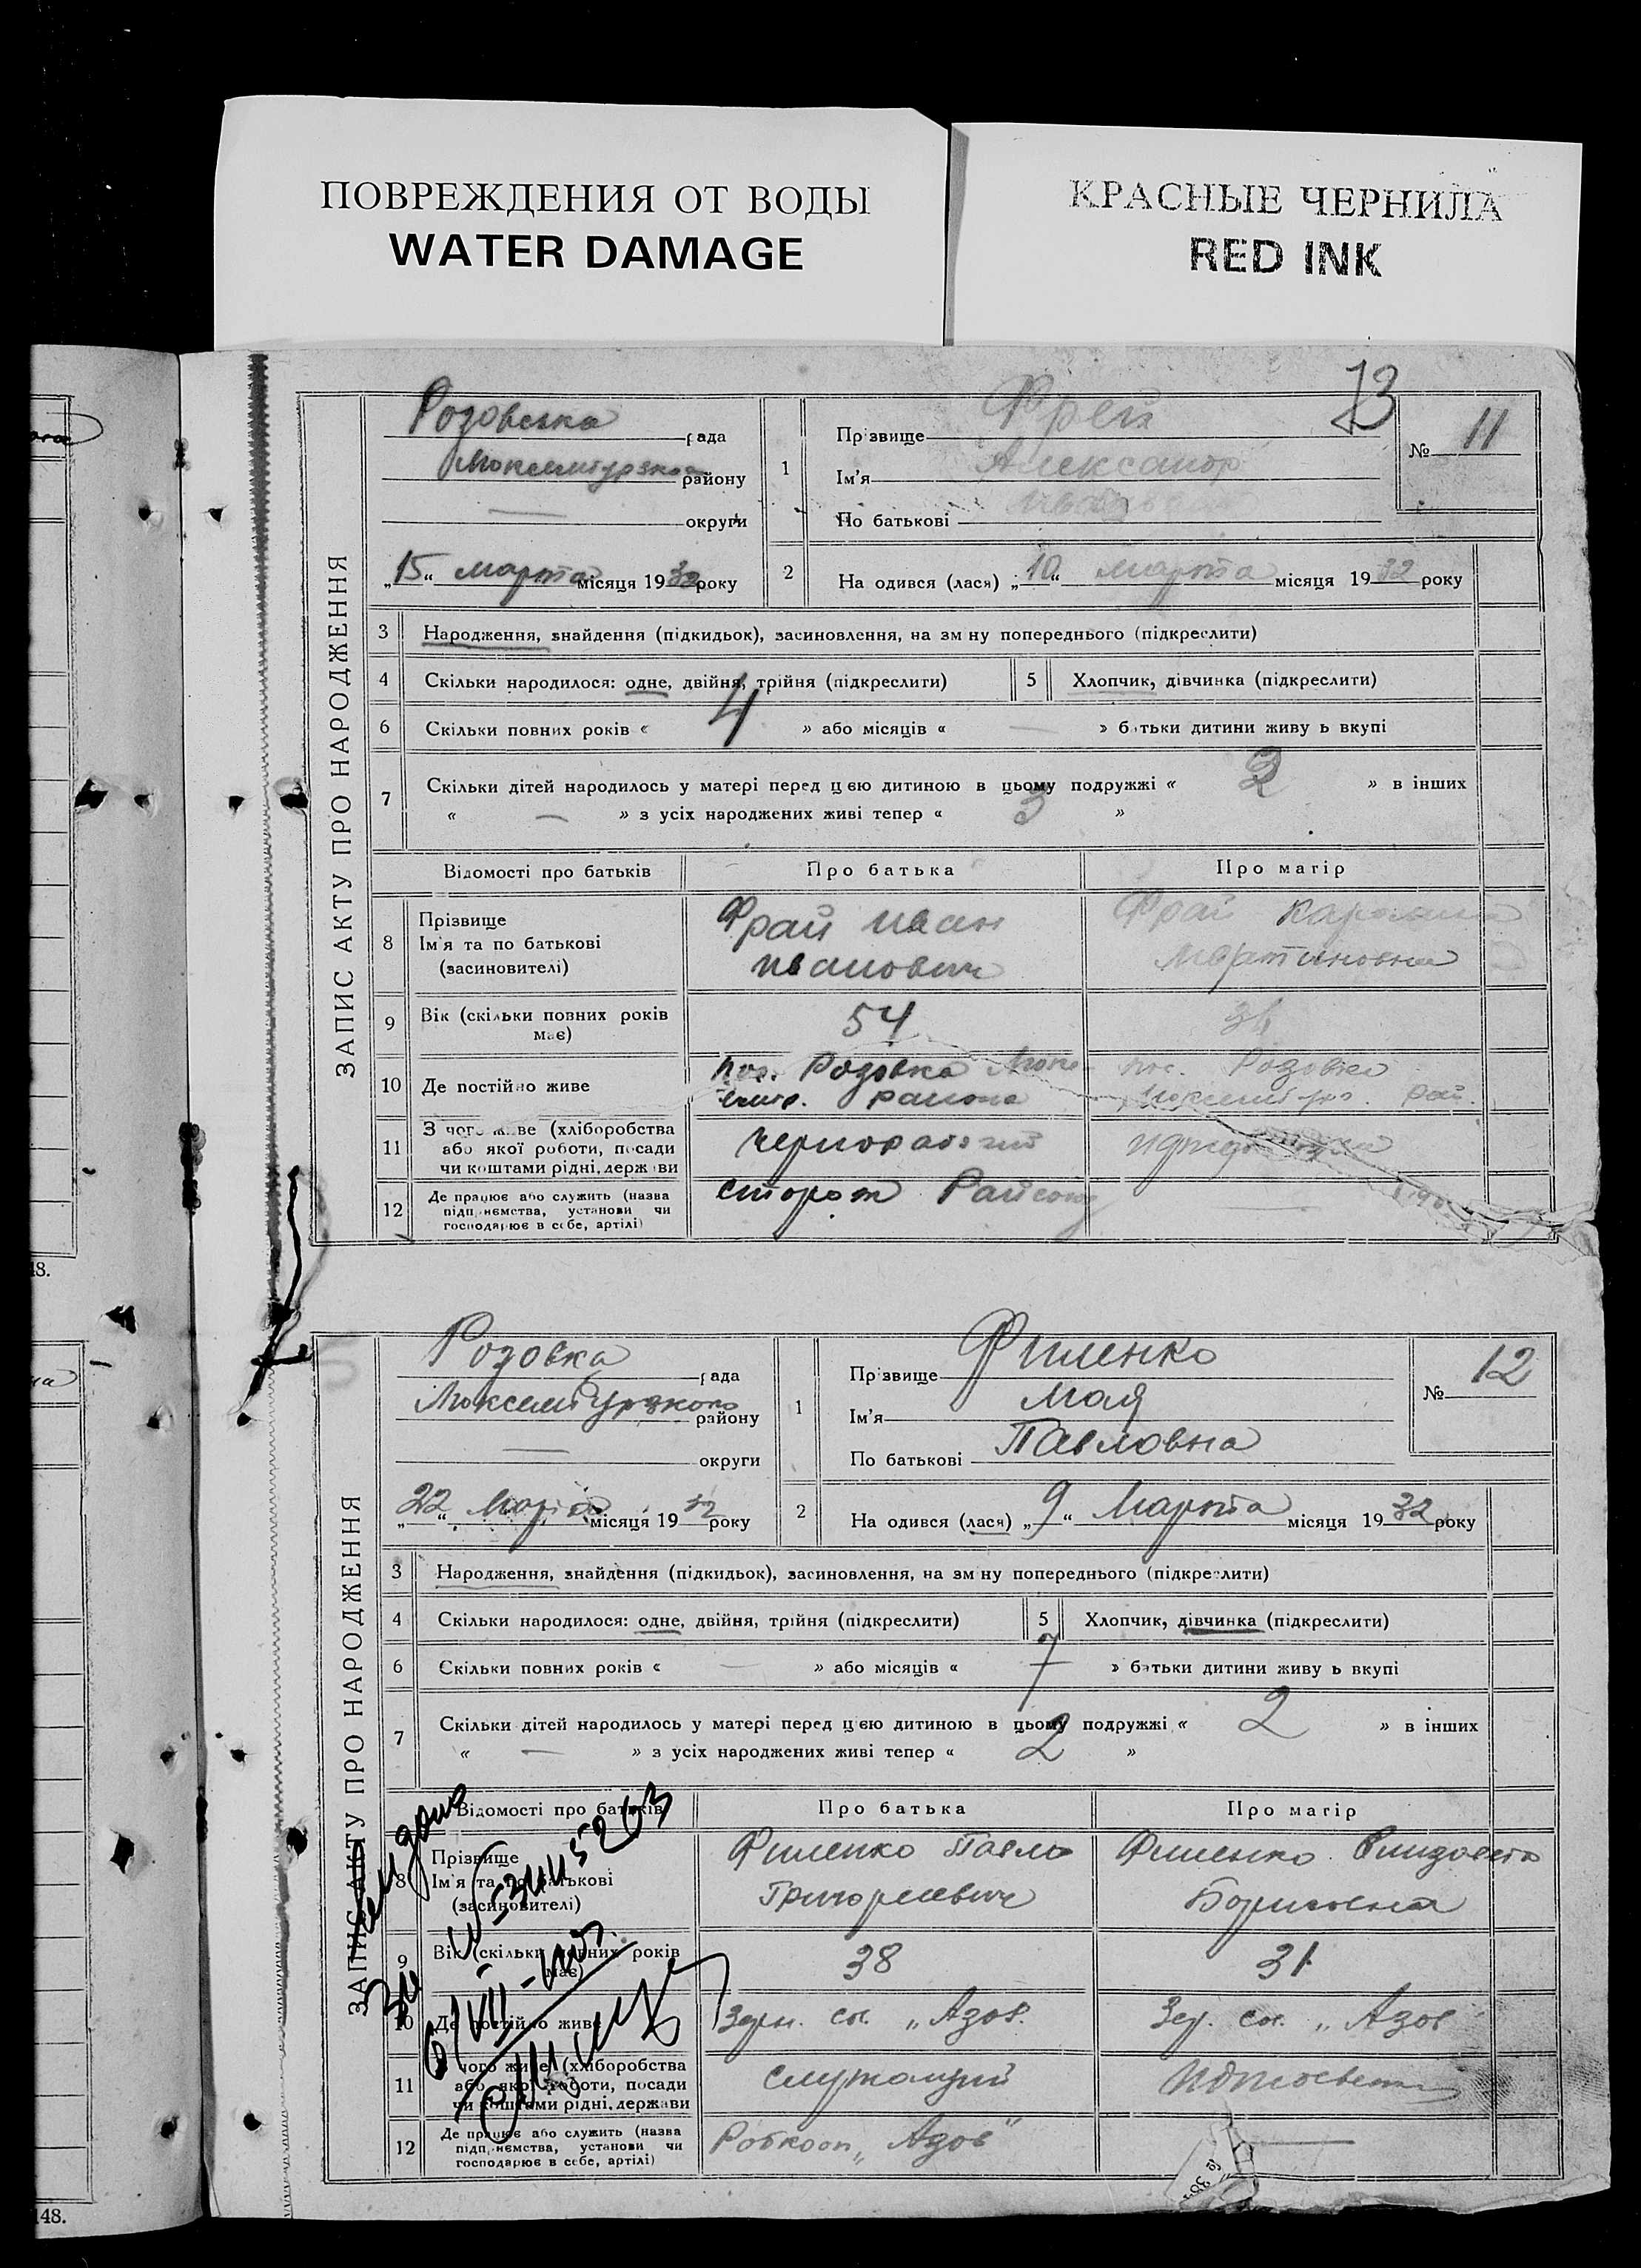 ПОВРЕЖДЕНИЯ ОТ ВОДЫ
WATER DAMAGE
КРАСНЫЕ ЧЕРНИЛА
RED INK
13
ЗАПИС АКТУ ПРО НАРОДЖЕННЯ
Розовська рада
району
— округи
„15“ марта місяця 1932 року
1
Прізвище Фрей
Ім'я Александр
По батькові
№ 11
2 На одився (лася) „10“ марта місяця 1932 року
3 Народження, знайдення (підкидьок), засиновлення, на зм ну попереднього (підкреслити)
4 Скільки народилося: одне, двійня, трійня (підкреслити) 5 Хлопчик, дівчинка (підкреслити)
6 Скільки повних років « 4 » або місяців « — » батьки дитини живу ь вкупі
7 Скільки дітей народилось у матері перед цею дитиною в цьому подружжі « » в інших
« — » з усіх народжених живі тепер « 3 »
Відомості про батьків Про батька Про матір
8 Прізвище Ім'я та по батькові (засиновителі)
Фрай Иван
Иванович
Фрай Каролина
Мартиновна
9 Вік (скільки повних років має) 54
10 Де постійно живе
пос. Розовка
района
пос. Розовка
11 З чого живе (хліборобства
або якої роботи, посади
чи коштами рідні, держави
чернорабочий
12 Де працює або служить (назва
підприємства, установи чи
господарює в себе, артілі)
сторож
—
ЗАПИС АКТУ ПРО НАРОДЖЕННЯ
Розовка рада
району
— округи
„22“ Марта місяця 1932 року
1
Прізвище Филенко
Ім'я Мая
По батькові Павловна
№ 12
2 На одився (лася) „9“ Марта місяця 1932 року
3 Народження, знайдення (підкидьок), засиновлення, на зм ну попереднього (підкреслити)
4 Скільки народилося: одне, двійня, трійня (підкреслити) 5 Хлопчик, дівчинка (підкреслити)
6 Скільки повних років « — » або місяців « 7 » батьки дитини живу ь вкупі
7 Скільки дітей народилось у матері перед цею дитиною в цьому подружжі « 2 » в інших
« — » з усіх народжених живі тепер « 2 »
Відомості про батьків Про батька Про матір
8 Прізвище
Ім'я та по батькові
(засиновителі)
Филенко Павло
Григорьевич
Филенко Елизовета
Борисовна
9 Вік (скільки повних років має) 38 31
10 Де постійно живе Зерн. сх. „Азов. Зер. сх. „Азов
11 чого живе (хліборобства
або якої роботи, посади
чи коштами рідні, держави
служащий
12 Де працює або служить (назва
підприємства, установи чи
господарює в себе, артілі)
Робкооп „Азов“
—
48.
148.